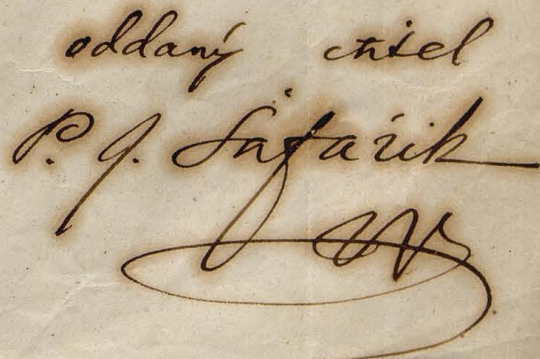 oddaný ctitel
P. J. Šafařik